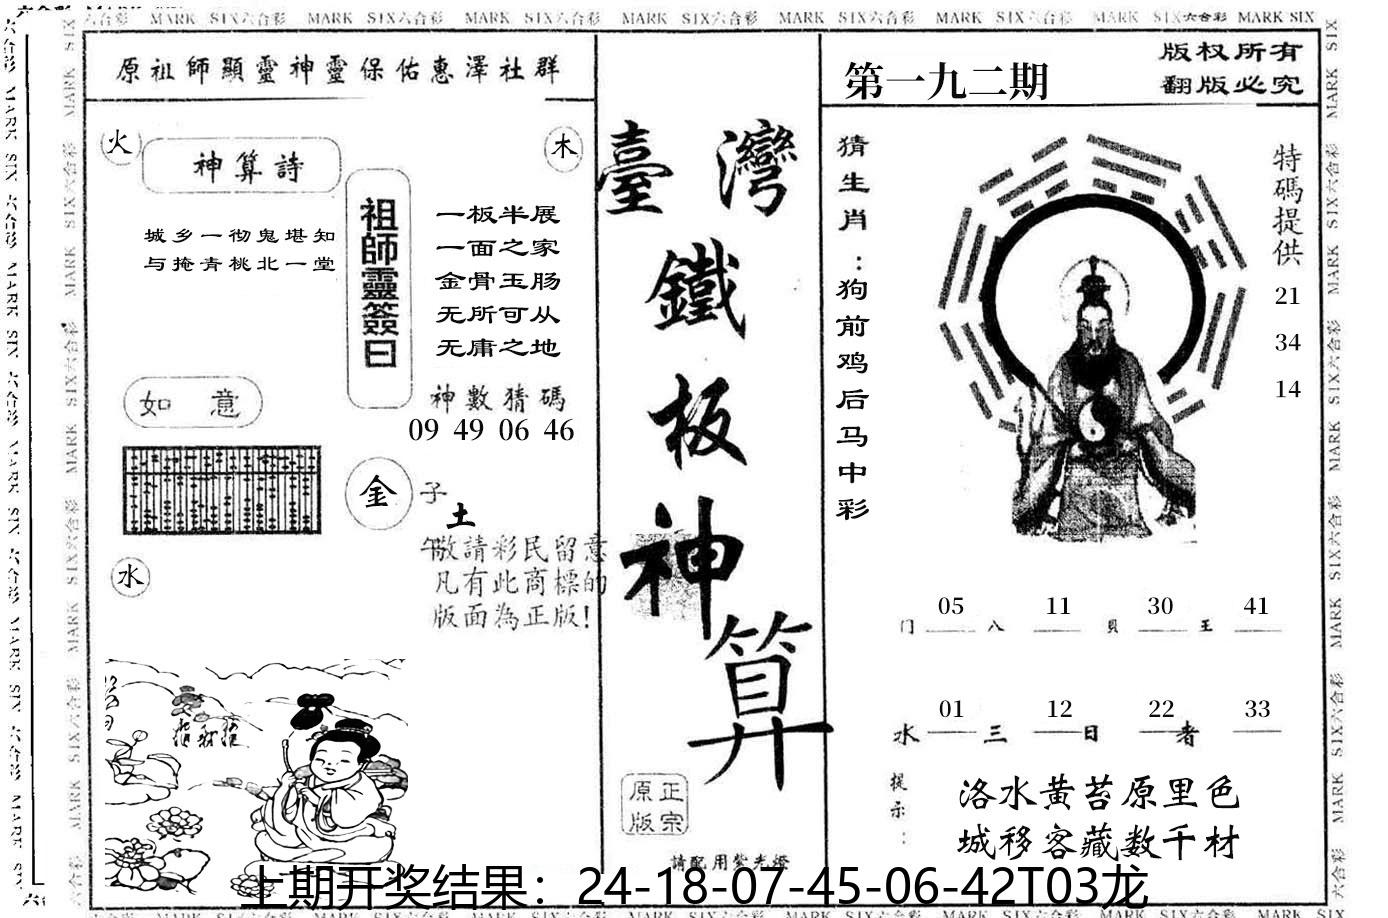 MARK SIX六合彩 MARK SIX六合彩 MARK SIX六合彩 MARK SIX六合彩 MARK SIX六合彩 MARK SIX六合彩 MARK SIX六合彩 MARK SIX
原祖師顯靈神靈保佑惠澤社群
第一九二期
版权所有
翻版必究
火
神算詩
木
城乡一彻鬼堪知
与掩青桃北一堂
祖師靈簽曰
一板半展
一面之家
金骨玉肠
无所可从
无庸之地
神數猜碼
09 49 06 46
如意
金
子
土
午
敬請彩民留意
凡有此商標的
版面為正版!
水
臺灣
鐵
板
神
算
正宗
原版
請配用紫光燈
猜生肖：狗前鸡后马中彩
特碼提供
21
34
14
门 05 八 11 貝 30 王 41
水 01 三 12 日 22 者 33
提示：
洛水黄苔原里色
城移客藏数千材
上期开奖结果：24-18-07-45-06-42T03龙